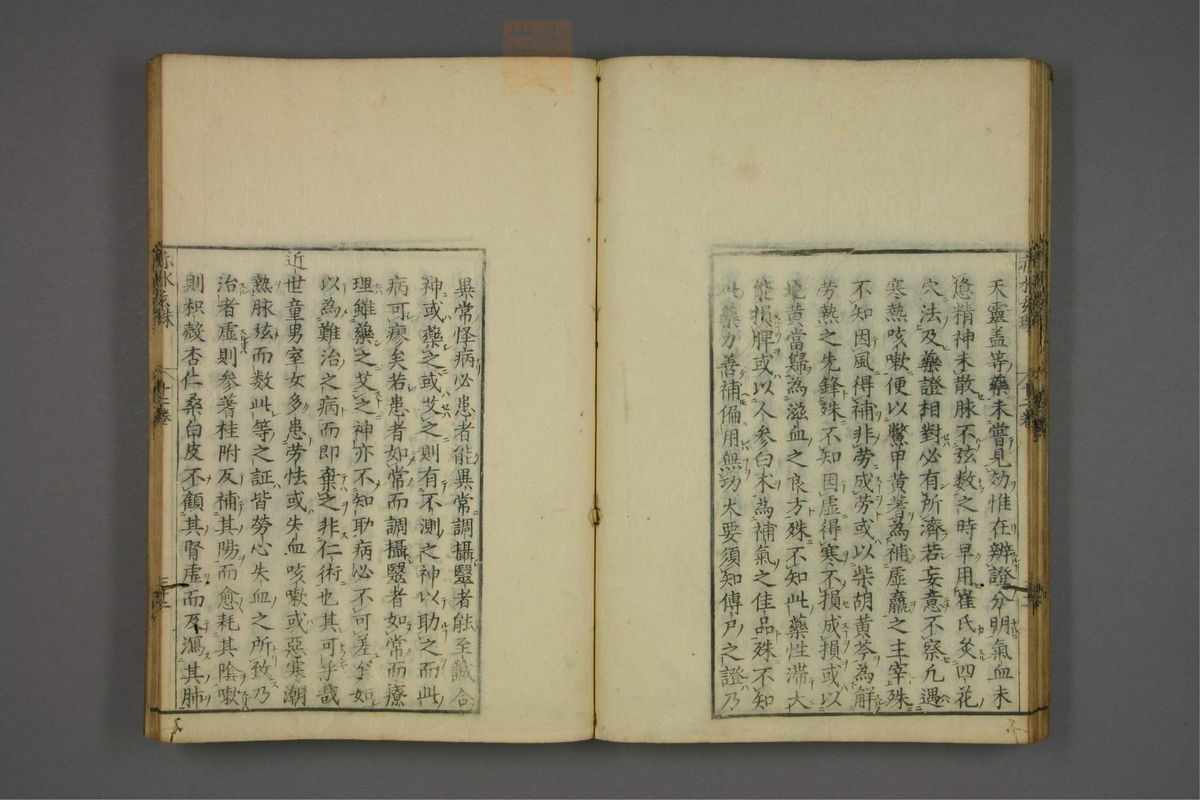 天靈盖等藥未嘗見効惟在辨證分明氣血未
憊精神未散脉不弦数之時早用崔氏灸四花
穴法及藥證相對必有所濟若妄意不察凡遇
寒熱咳嗽便以鱉甲黄蓍為補虛羸之主宰殊
不知因風得補非劳成劳或以柴胡黄芩為解
劳熱之先鋒殊不知因虛得寒不損成損或以
地黄當歸為滋血之良方殊不知此藥性滞大
能損脾或以人参白术為補氣之佳品殊不知
此藥力善補偏用無功大要須知傳尸之證乃
異常怪病必患者能異常調攝毉者能至誠合
神或藥之或艾之則有不測之神以助之而此
病可瘳矣若患者如常而調攝毉者如常而療
理雖藥之艾之神亦不知助病必不可差乎如
以為難治之病而即棄之非仁術也其可乎哉
近世童男室女多患劳怯或失血咳嗽或惡寒潮
熱脉弦而数此等之証皆勞心失血之所致乃
治者虛則参蓍桂附反補其陽而愈耗其陰嗽
則枳殼杏仁桑白皮不顧其腎虛而反瀉其肺
赤水玄珠